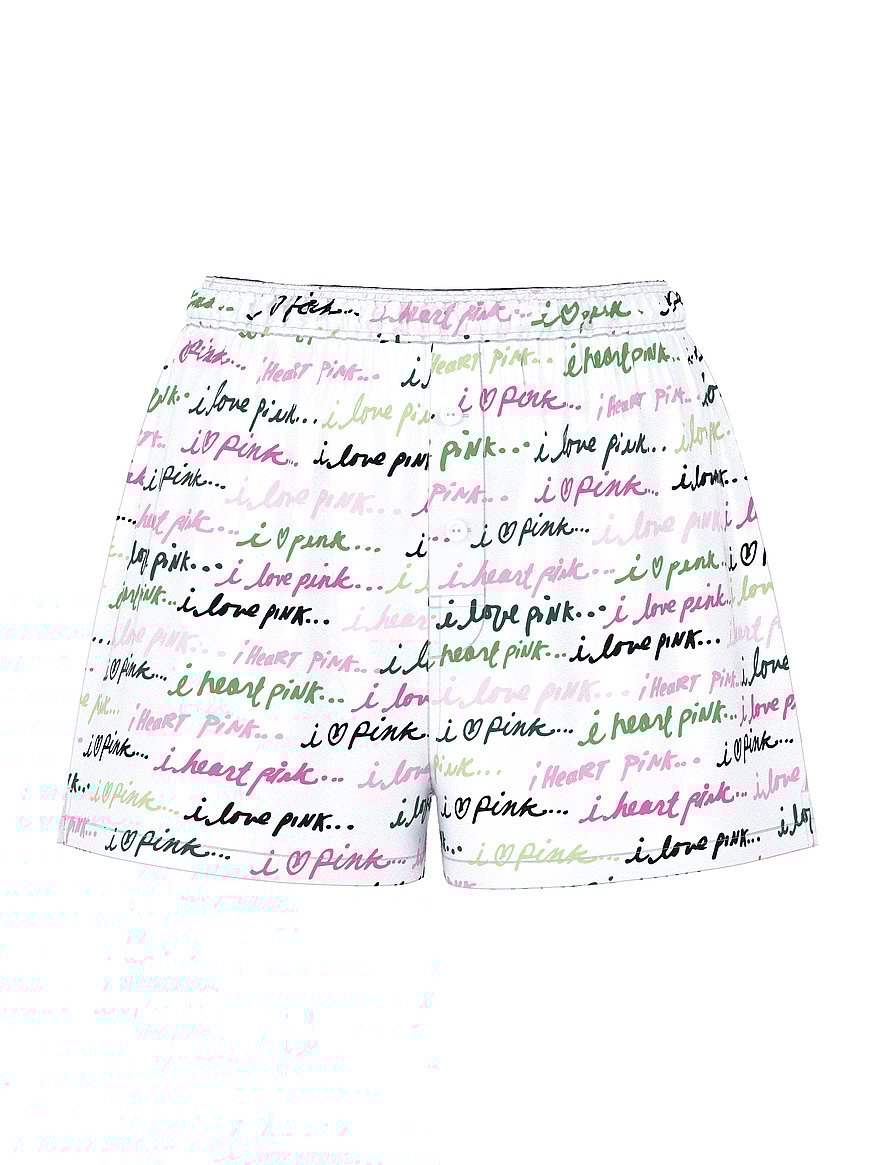 i heart pink... i ♡ pink.
pink... i HeaRT PiNK... HeaRT PiNK... i heart piNK...
i ♡ pink... i HeaRT PiNK...
i love pink... i love pin i love pink...
i ♡ pink... i love pINK PiNK...
i ♡ pink... PiNK... i ♡ pink... i love...
i love pINK... i ♡ pink... i love pINK
heart pink... i ♡ pink...
love pink... i love pink... i heart pink... i ♡ pink...
i love pINK... i love pink... i love pink... love
love pINK... i HeaRT PiNK... heart piNK... i love pINK...
i ♡ pink... i heart piNK... i lov i love pINK... i HeaRT PINK... i love
i HeaRT PiNK... i ♡ pink... i ♡ pink... i heart piNK... i love p
i ♡ pink... i heart pink... i love i HeaRT PiNK... i ♡ pink...
i ♡ pink... i love pINK... i ♡ pink... i heart pink... i love
i ♡ pink... i ♡ pink... i ♡ pink... i love pINK...